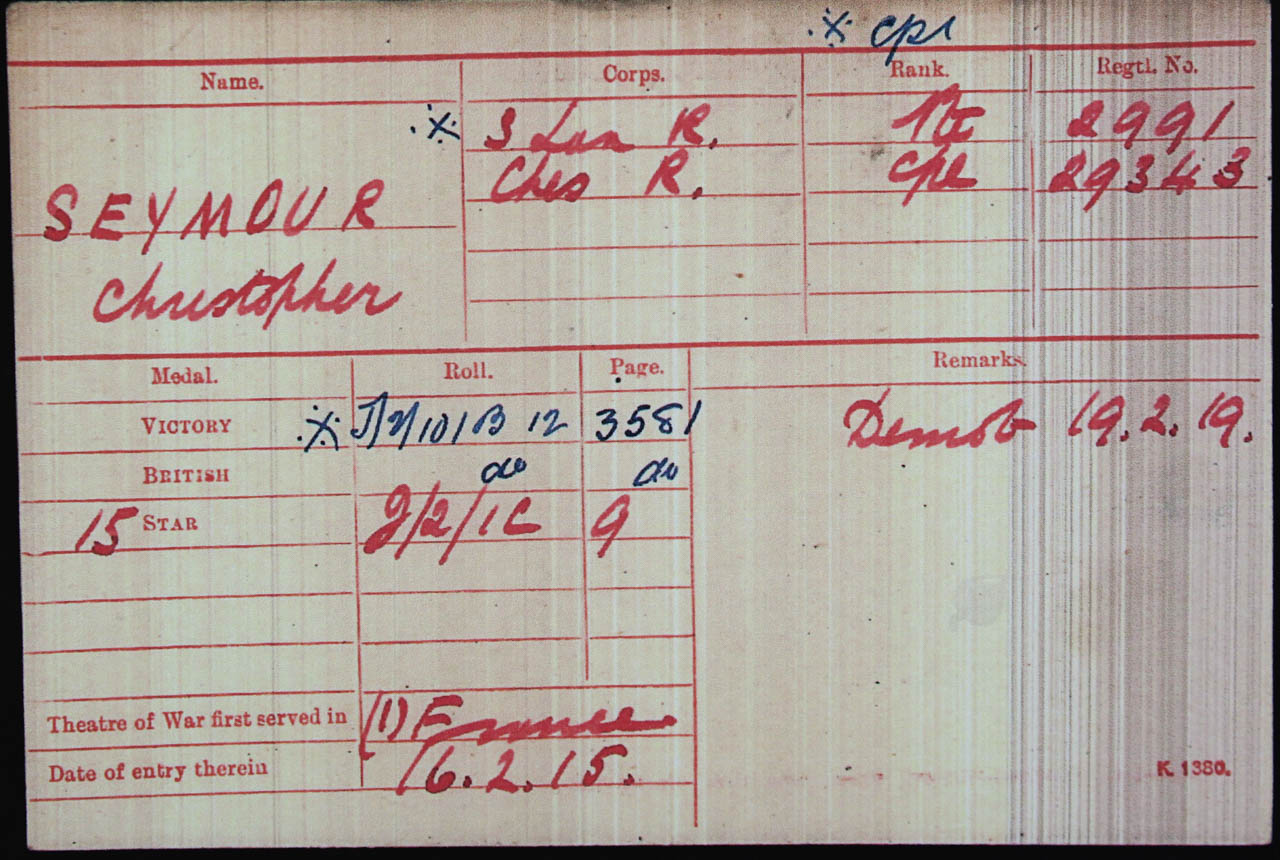 ※ Cpl
Name. Corps. Rank. Regtl. No.
※ S Lan R. Pte 2991
Ches R. Cpl 29343
SEYMOUR
Christopher
Medal. Roll. Page. Remarks.
VICTORY ※ J/2/101B12 3581 Demob 19.2.19.
BRITISH do do
15 STAR J/2/1C 9
Theatre of War first served in (1) France
Date of entry therein 16.2.15.
K. 1380.